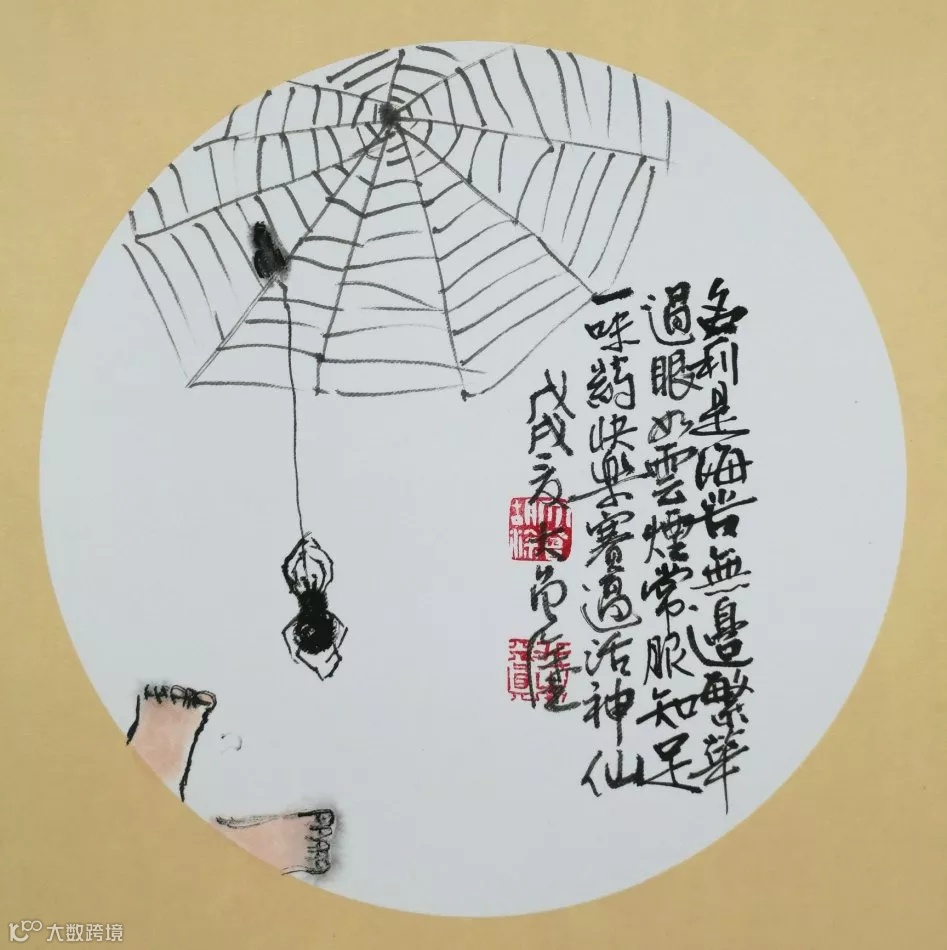 名利是海苦無邊繁華
過眼如雲煙常服知足
一味葯快樂賽過活神仙
戊戌夏
大数跨境